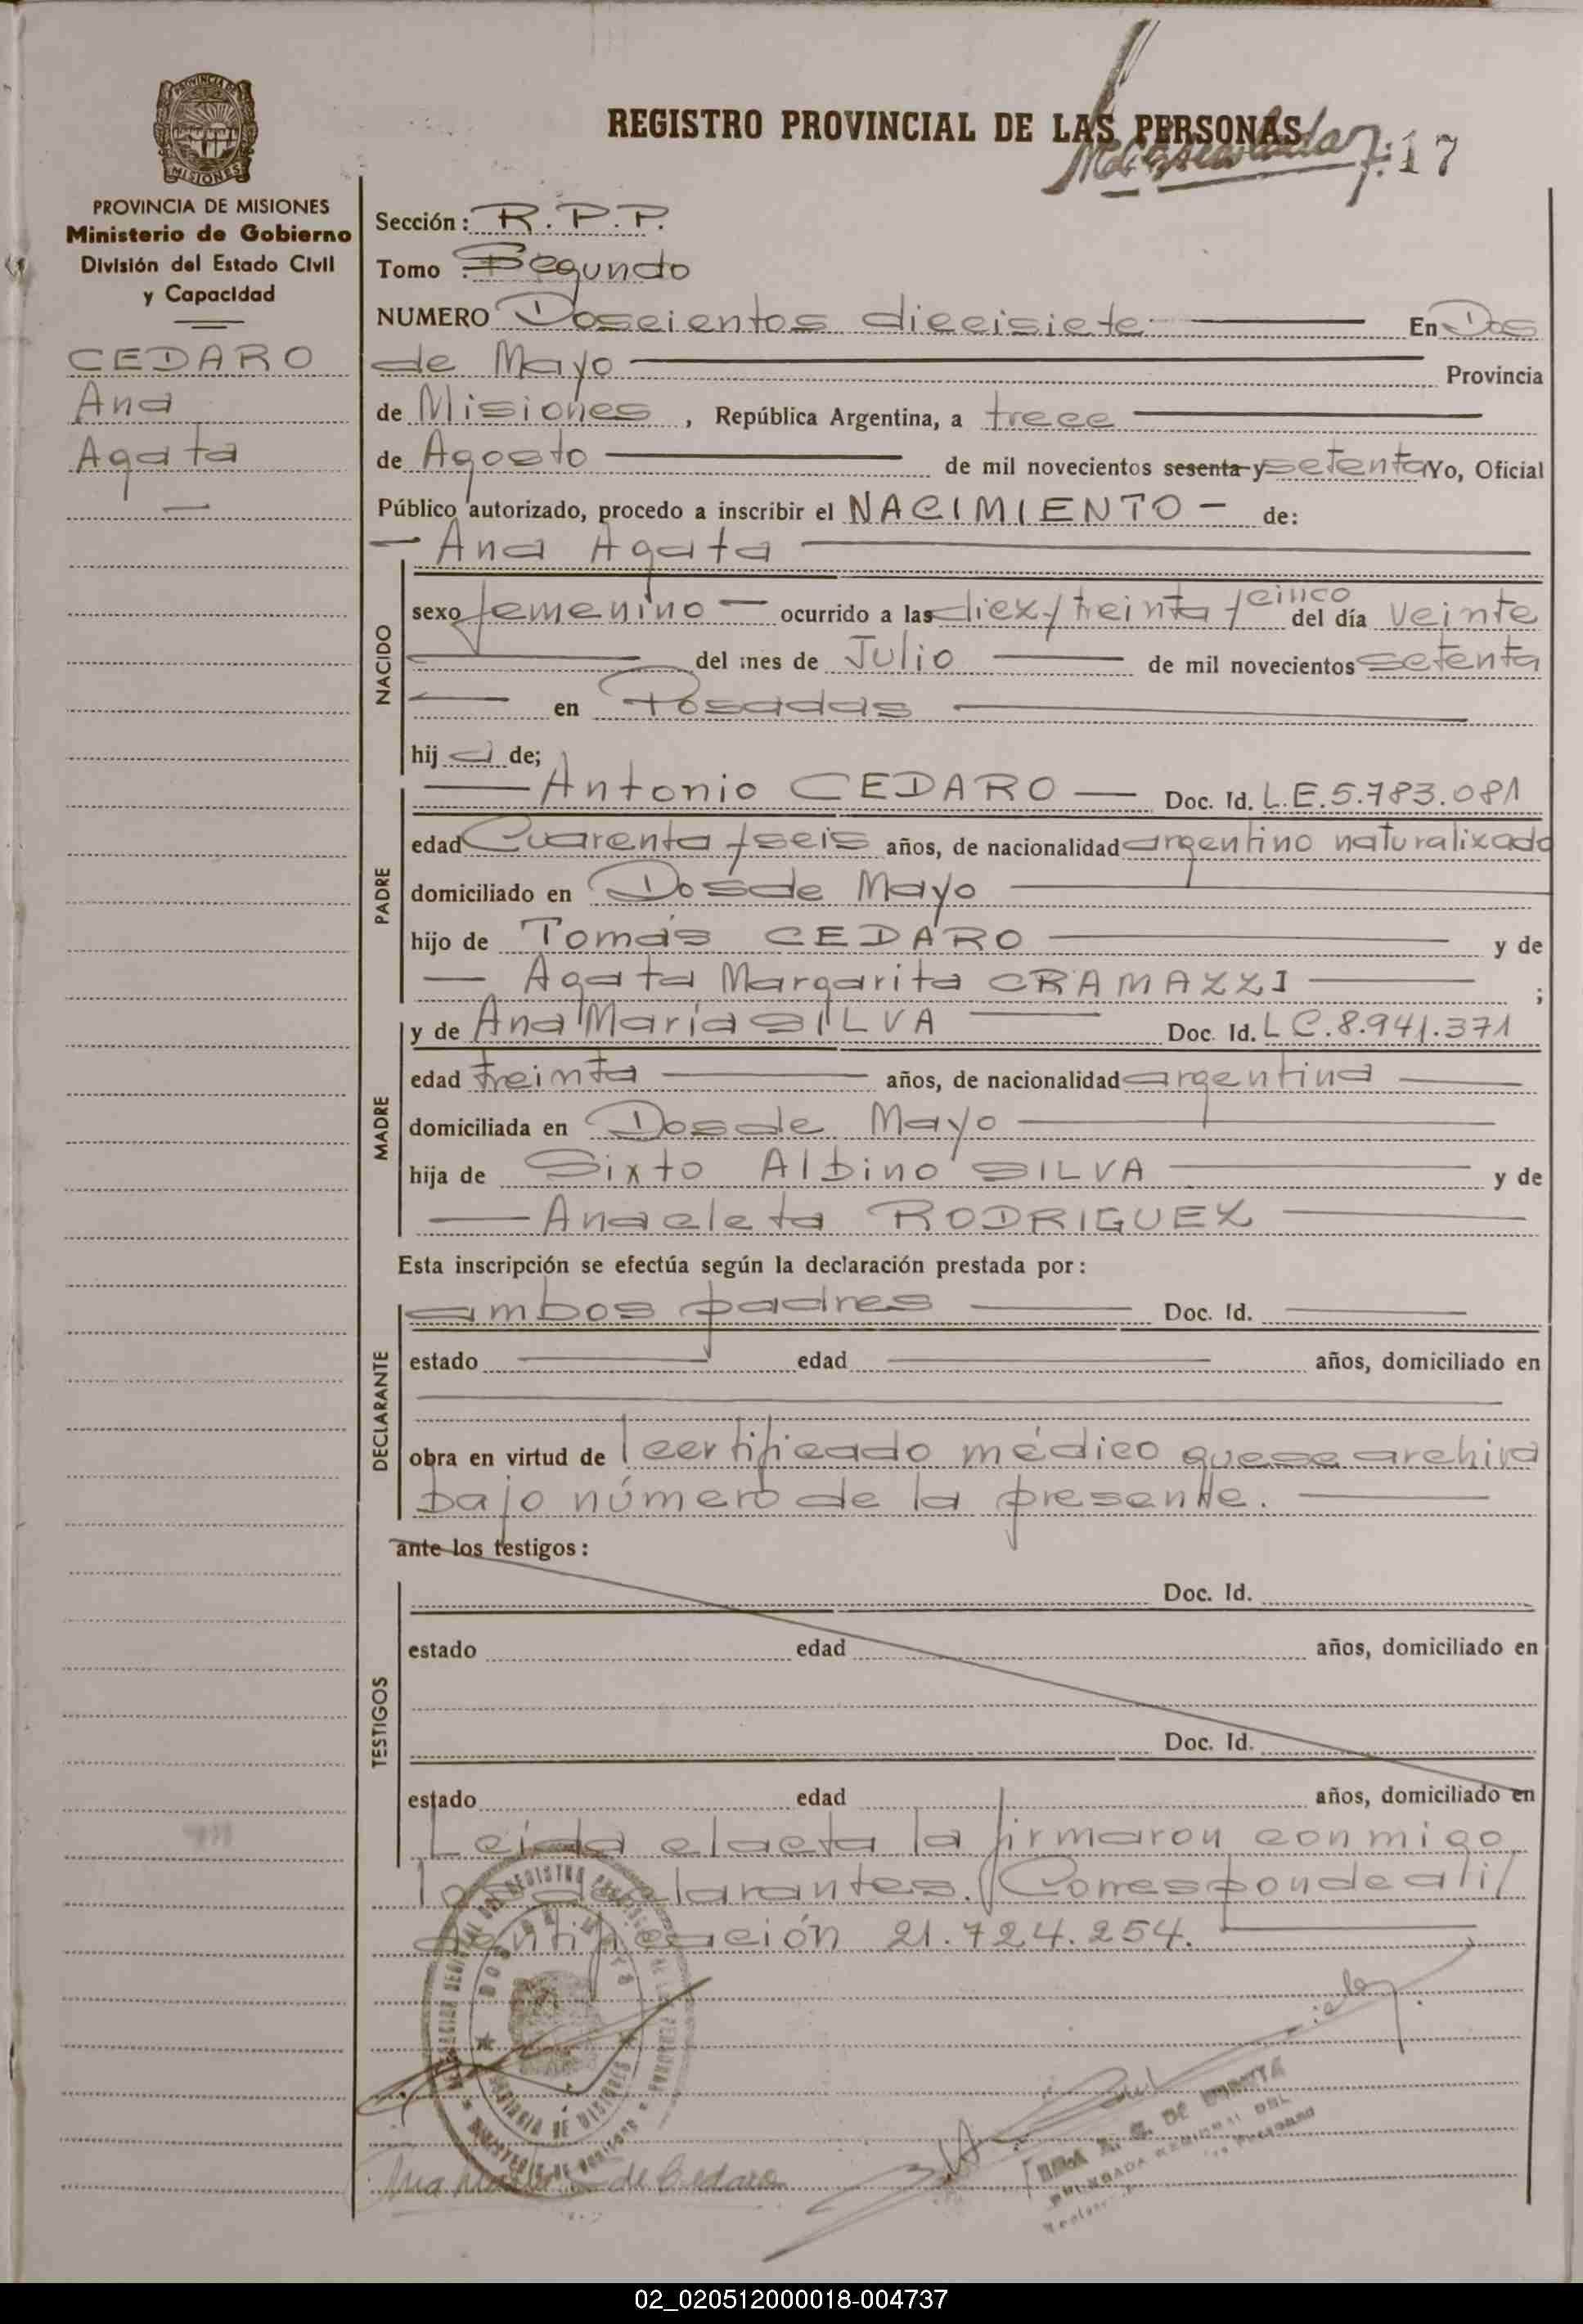 REGISTRO PROVINCIAL DE LAS PERSONAS
17
PROVINCIA DE MISIONES
Ministerio de Gobierno
División del Estado Civil
y Capacidad
CEDARO
Ana
Agata
Sección: R.P.P.
Tomo: Segundo
NUMERO Doscientos diecisiete En Dos
de Mayo Provincia
de Misiones, República Argentina, a trece
de Agosto de mil novecientos sesenta y setenta Yo, Oficial
Público autorizado, procedo a inscribir el NACIMIENTO - de:
- Ana Agata
NACIDO
sexo femenino - ocurrido a las diez y treinta y cinco del día veinte
del mes de Julio de mil novecientos setenta
en Posadas
hija de;
PADRE
Antonio CEDARO - Doc. Id. L.E.5.783.081
edad Cuarenta y seis años, de nacionalidad argentino naturalizado
domiciliado en Dos de Mayo
hijo de Tomás CEDARO y de
- Agata Margarita CRAMAZZI ;
MADRE
y de Ana María SILVA Doc. Id. L C.8.941.371
edad treinta años, de nacionalidad argentina
domiciliada en Dos de Mayo
hija de Sixto Albino SILVA y de
Anacleta RODRIGUEZ
Esta inscripción se efectúa según la declaración prestada por:
DECLARANTE
ambos padres Doc. Id.
estado edad años, domiciliado en
obra en virtud de l certificado médico que se archiva
bajo número de la presente.
ante los testigos:
TESTIGOS
Doc. Id.
estado edad años, domiciliado en
Doc. Id.
estado edad años, domiciliado en
Leída el acta la firmaron conmigo
los declarantes. Corresponde al i/
dentificación 21.724.254.
de Cedaro
02_020512000018-004737